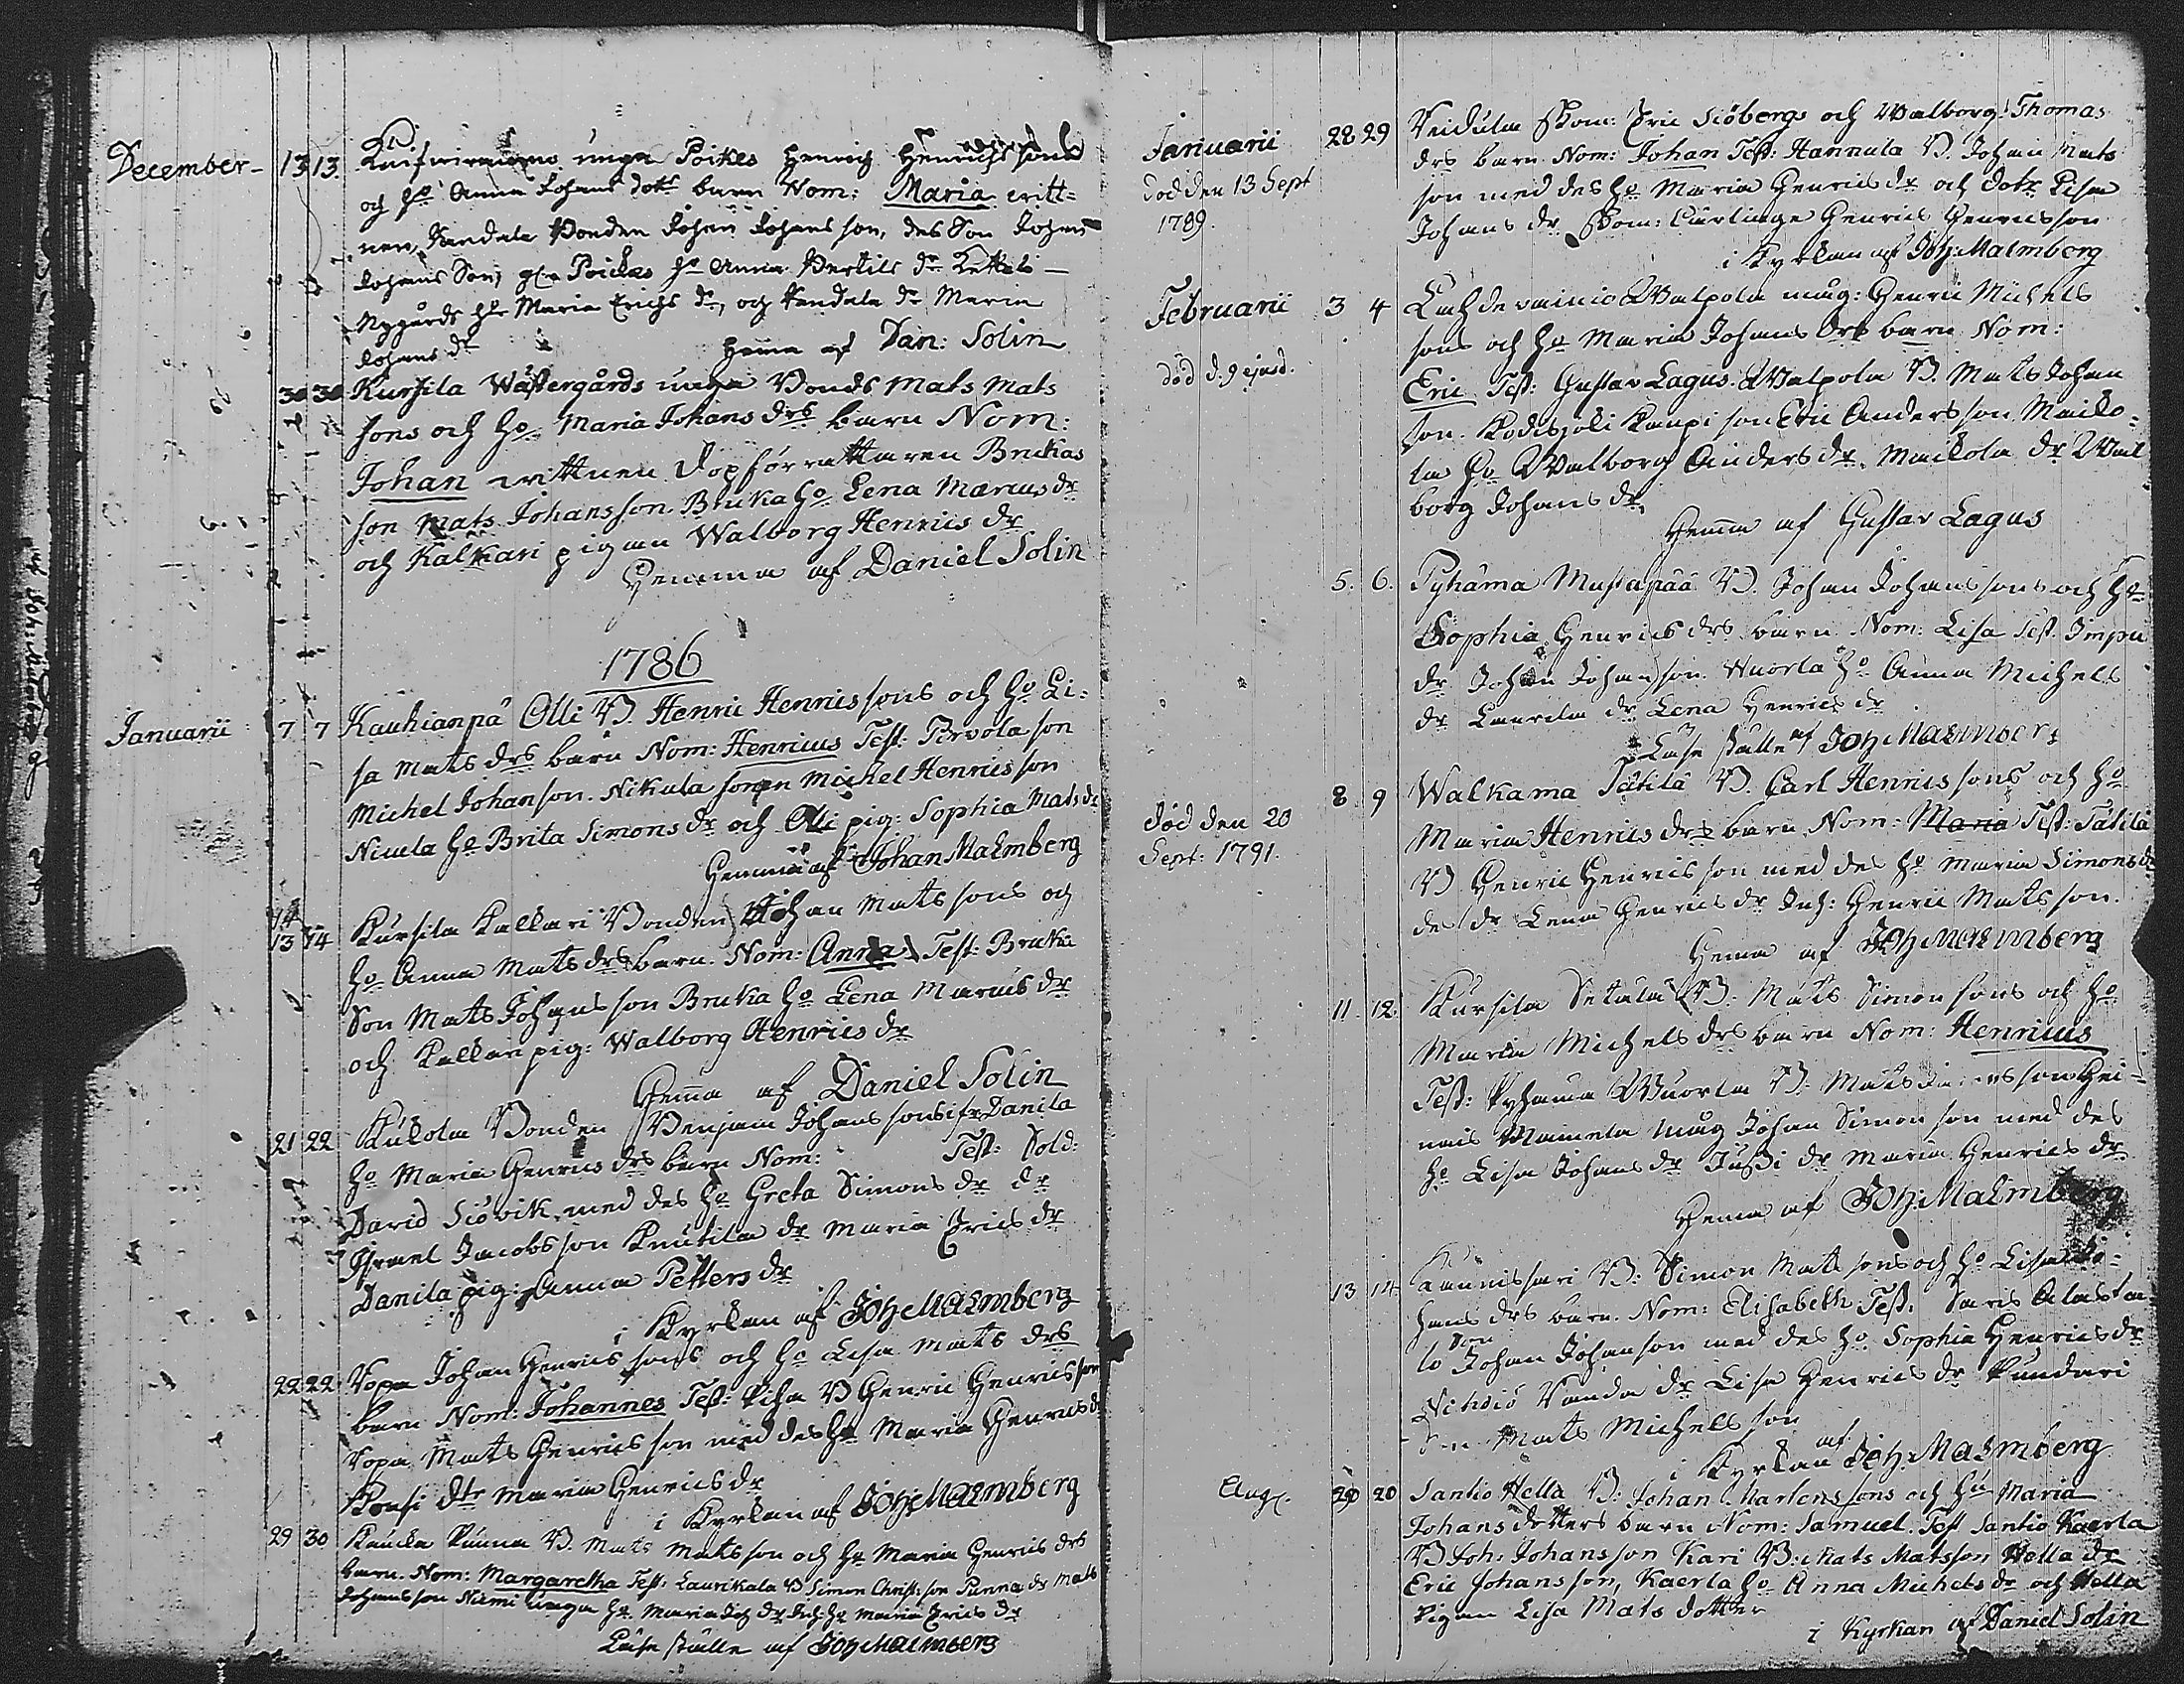 December - 13 13. unga Poikes Henrich Henrichssons
och Ho Anna Johans dotr barn Nom: Maria witt=
nen, Vandala Bonden Johan Johans son, des Son Johan
Johans Son, Poickas Ho Anna Bertils dr
Nygårds Ho Maria Erichs dr, och Vandala dr Maria
Johans dr hemma af Dan: Solin
30 30 Kursila Wästergårds unga Bonds Mats Mats
sons och Ho Maria Johans drs barn Nom:
Johan wittnen Dopförrättaren Brukas
son Mats Johansson. Bruka Ho Lena Marcus dr
och Kalkari pigan Walborg Henrics dr
Hemma af Daniel Solin
1786
Januarii 7 7 Kauhianpä Olli B. Henric Henrics sons och Ho Li=
sa Mats drs barn Nom: Henricus Test: Pervola son
Michel Johanson. Nikula sonen Michel Henrics son
Nicula Ho Brita Simons dr och Olli pig: Sophia Mats dr
Hemma af Johan Malmberg
14
13 14 Kursila Kallari Bonden Johan Mats sons och
Ho Anna Mats drs barn. Nom: Anna Test: Bruka
Son Mats Johansson Bruka Ho Lena Marcus dr
och Kallari pig: Walborg Henrics dr
Hemma af Daniel Solin
21 22 Kukola Bonden Benjam Johans sons ifr Danila
Ho Maria Henrics drs barn Nom: Test: Sold:
David Siövik med des Ho Greta Simons dr dr
Israel Jacobs son Knutila dr Maria Erics dr
Danila pig: Anna Petters dr
i Kyrkan af Joh: Malmberg
22 22 Sopa Johan Henrics sons och Ho Lisa Mats drs
barn Nom: Johannes Test: B Henric Henrics son
Sopa Mats Henrics son med des Ho Maria Henrics dr
dtr Maria Henrics dr
i Kyrkan af Joh: Malmberg
29 30 Kaucka Punna B. Mats Mats son och Ho Maria Henrics drs
barn. Nom: Margaretha Test: Laurikala B Simon Christ: son Punna dr Mats
Johansson Niemi unga Ho Maria Joh dr Inh: Ho Maria Erics dr
Läse ställe af Joh: Malmberg
Januarii 28 29 Som: Eric Siöbergs och Walborg Thomas
död den 13 Sept drs barn. Nom: Johan Test: Hannula B. Johan Mats
1789. son med des Ho Maria Henrics dr och dotr Lisa
Johans dr Henrics Henricsson
i Kyrkan af Joh: Malmberg
Februarii 3 4 Walpola mag: Henric Michels
sons och Ho Maria Johans drs barn Nom:
död d. 9 ejusd. Eric Test: Gustav Lagus. Walpola B. Mats Johan
son. Kaupi son Eric Anders son Maiko=
la Ho Walborg Anders dr, Maikola dr Wal
borg Johans dr,
Hemma af Gustav Lagus
5. 6. Pyhäma Mustapää B. Johan Johans sons och Ho
Sophia Henrics drs barn Nom: Lisa Test. Impu
dr Johan Johan son. Wuorla Ho Anna Michels
dr Laurila dr Lena Henrics dr
i Läse ställe af Joh: Malmberg
8. 9 Walkama Tätilä B. Carl Henrics sons och Ho
död den 20 Maria Henrics drs barn Nom: Maria Test: Tätilä
Sept: 1791. B Henric Henrics son med des Ho Maria Simons dr
des dr Lena Henrics dr Inh: Henric Mats son.
Hemma af Joh: Malmberg
11. 12. Kursila Setala B. Mats Simon sons och Ho
Maria Michels drs barn Nom: Henricus
Test: Pyhäma Wuorla B. Mats son Hei=
nais mag Johan Simon son med des
Ho Lisa Johans dr Jussi dr Maria Henrics dr
Hemma af Joh: Malmberg
13 14 B: Simon Mats sons och Ho Lisa Jo=
hans drs barn. Nom: Elisabeth Test: Saris Alasta=
lo son Johan Johanson med des Ho Sophia Henrics dr
Wanda dr Lisa Henrics dr
Mats Michels son
i Kyrkan af Joh: Malmberg
Aug. 20 20 Santio Hella B: Johan Martens sons och Hu Maria
Johans dotters barn Nom: Samuel. Test Santio Kaerla
B Joh: Johansson Kari B: Mats Matsson Hella dr
Eric Johansson, Kaerla Ho Anna Michels dr och Hella
Pigan Lisa Mats dotter
i Kyrkan af Daniel Solin